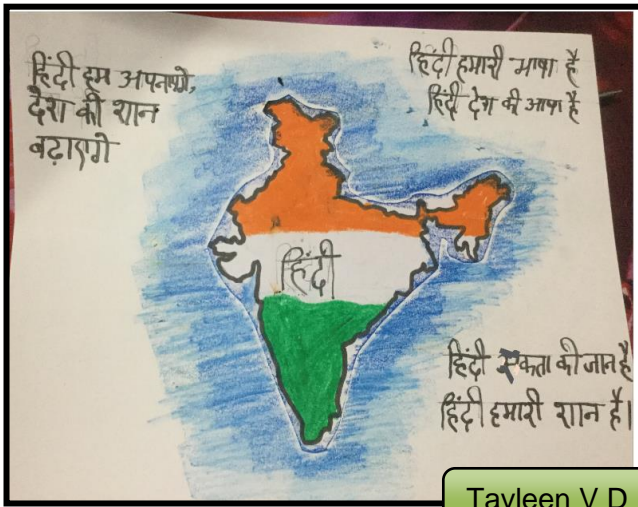 हिंदी हम अपनाएगे,
देश की शान
बढ़ाएगे
हिंदी हमारी भाषा है
हिंदी देश की आषा है
हिंदी
हिंदी एकता की जान है
हिंदी हमारी शान है।
Tavleen V D